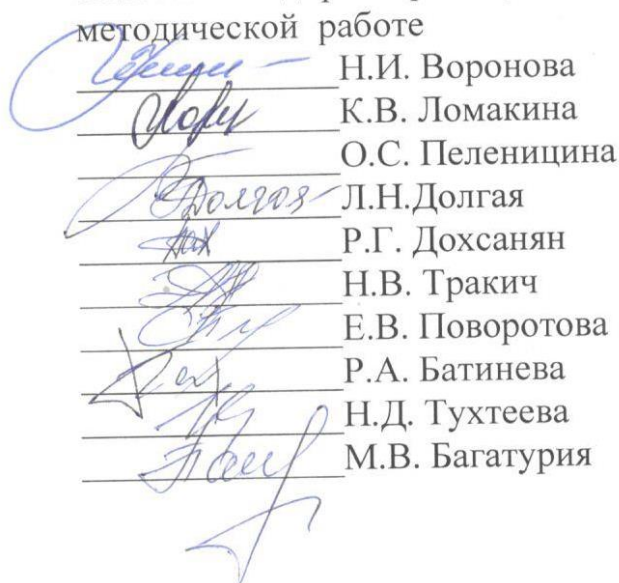 методической работе
Н.И. Воронова
К.В. Ломакина
О.С. Пеленицина
Долгая Л.Н.Долгая
Р.Г. Дохсанян
Н.В. Тракич
Е.В. Поворотова
Р.А. Батинева
Н.Д. Тухтеева
М.В. Багатурия